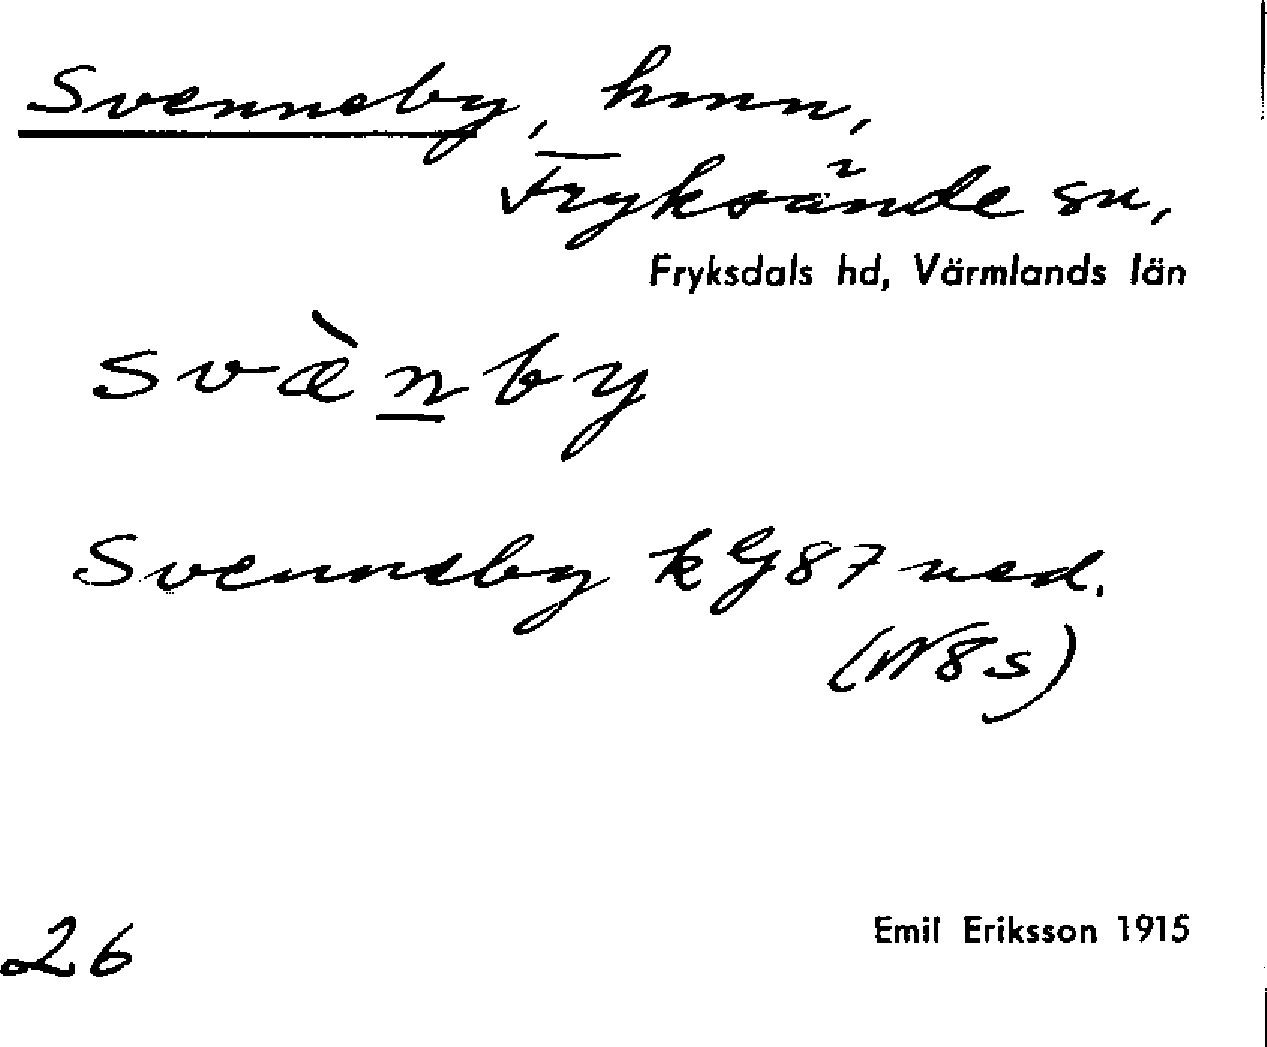 Svenneby, hmn,
Fryksände sn,
Fryksdals hd, Värmlands län
svæ̀n̲by
Svenneby k G 87 ned.
(N 8 s)
26
Emil Eriksson 1915